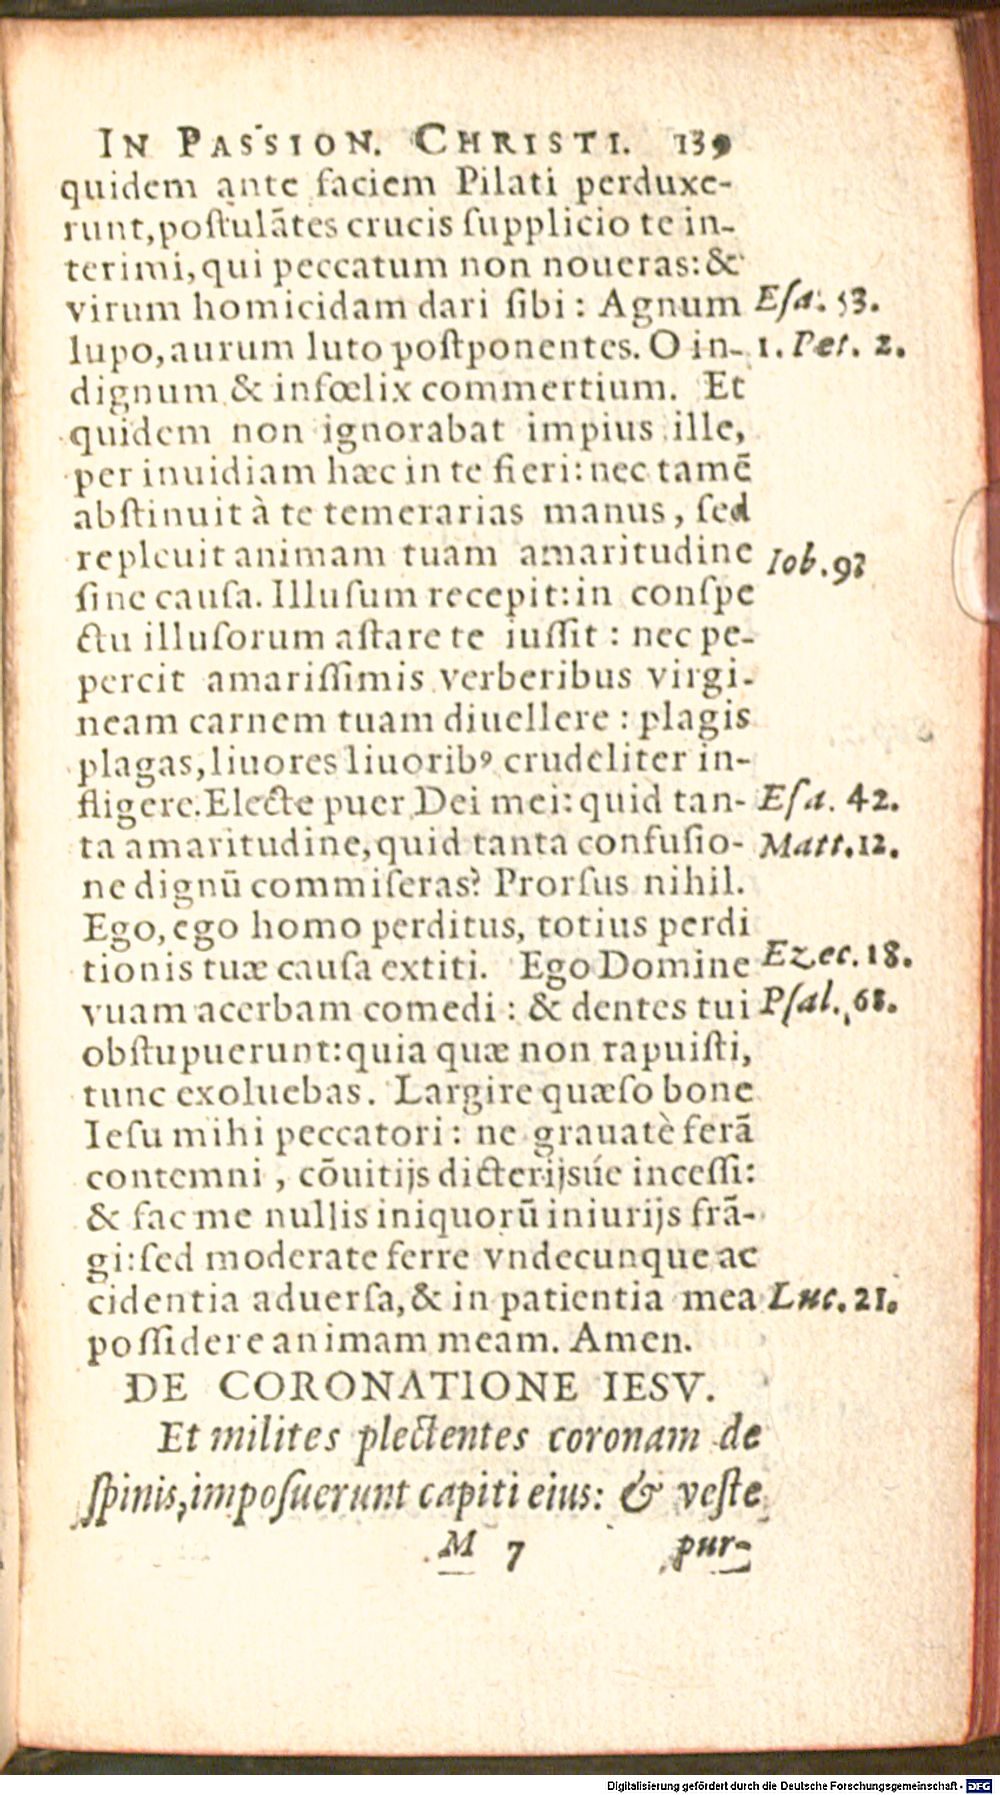 IN PASSION. CHRISTI. 139
quidem ante faciem Pilati perduxe-
runt, poſtulãtes crucis ſupplicio te in-
terimi, qui peccatum non noueras: &
virum homicidam dari ſibi: Agnum Eſa. 53.
lupo, aurum luto poſtponentes. O in- 1. Pet. 2.
dignum & infœlix commertium. Et
quidem non ignorabat impius ille,
per inuidiam hæc in te fieri: nec tamẽ
abſtinuit à te temerarias manus, ſed
repleuit animam tuam amaritudine Iob. 9?
ſine cauſa. Illuſum recepit: in conſpe
ctu illuſorum aſtare te iuſſit: nec pe-
percit amariſſimis verberibus virgi-
neam carnem tuam diuellere: plagis
plagas, liuores liuoribꝰ crudeliter in-
fligere. Electe puer Dei mei: quid tan- Eſa. 42.
ta amaritudine, quid tanta confuſio- Matt. 12.
ne dignũ commiſeras? Prorſus nihil.
Ego, ego homo perditus, totius perdi
tionis tuæ cauſa extiti. Ego Domine Ezec. 18.
vuam acerbam comedi: & dentes tui Pſal. 68.
obſtupuerunt: quia quæ non rapuiſti,
tunc exoluebas. Largire quæſo bone
Ieſu mihi peccatori: ne grauatè ferã
contemni, cõuitijs dicterijsúe inceſſi:
& fac me nullis iniquorũ iniurijs frã-
gi: ſed moderate ferre vndecunque ac
cidentia aduerſa, & in patientia mea Luc. 21.
poſſidere animam meam. Amen.
DE CORONATIONE IESV.
Et milites plectentes coronam de
ſpinis, impoſuerunt capiti eius: & veſte
M 7 pur-
Digitalisierung gefördert durch die Deutsche Forschungsgemeinschaft - DFG